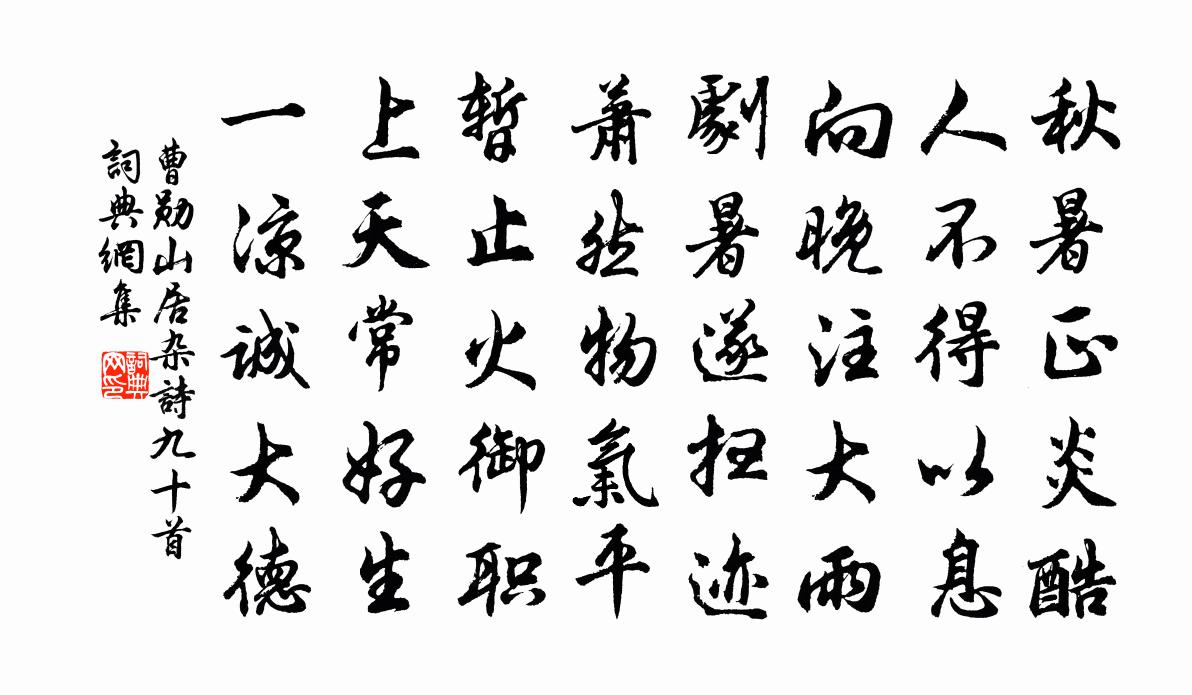 秋暑正炎酷
人不得以息
向晚注大雨
劇暑遂扫迹
萧然物氣平
暫止火御职
上天常好生
一凉誠大德
曹勋山居杂詩九十首
詞典網集
詞典网印